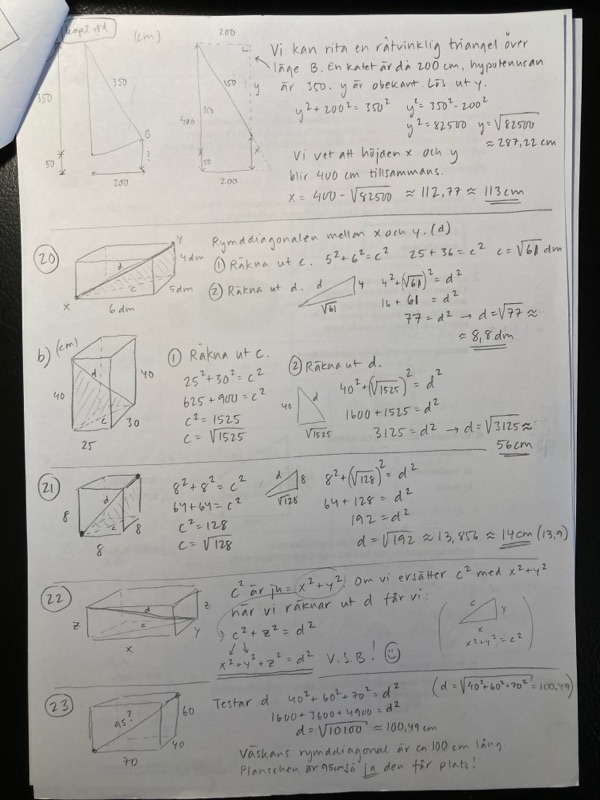 kap 2
(cm)
200
Vi kan rita en rätvinklig triangel över
läge B. En katet är då 200 cm, hypotenusan
är 350. y är obekant. Lös ut y.
350
350
B
50
?
200
400
350
y
50
x
200
y² + 200² = 350²   y² = 350² - 200²
y² = 82500   y = √82500
≈ 287,22 cm
Vi vet att höjden x och y
blir 400 cm tillsammans.
x = 400 - √82500 ≈ 112,77 ≈ 113 cm
20
Rymddiagonalen mellan x och y. (d)
① Räkna ut c. 5² + 6² = c²   25 + 36 = c²   c = √61 dm
y
4 dm
d
c
5 dm
x
6 dm
② Räkna ut d.
d
4
√61
4² + (√61)² = d²
16 + 61 = d²
77 = d² → d = √77 ≈
≈ 8,8 dm
b) (cm)
d
40
40
c
30
25
① Räkna ut c.
25² + 30² = c²
625 + 900 = c²
c² = 1525
c = √1525
② Räkna ut d.
40
d
√1525
40² + (√1525)² = d²
1600 + 1525 = d²
3125 = d² → d = √3125 ≈
56 cm
21
d
8
c
8
8
8² + 8² = c²
64 + 64 = c²
c² = 128
c = √128
d
8
√128
8² + (√128)² = d²
64 + 128 = d²
192 = d²
d = √192 ≈ 13,856 ≈ 14 cm (13,9)
22
d
z
z
c
y
x
c² är ju = x² + y² Om vi ersätter c² med x² + y²
när vi räknar ut d får vi:
c² + z² = d²
x² + y² + z² = d²   V.S.B!
c
y
x
x² + y² = c²
23
95?
60
40
70
Testar d   40² + 60² + 70² = d²
1600 + 3600 + 4900 = d²
d = √10100 ≈ 100,49 cm
(d = √40² + 60² + 70² = 100,49)
Väskans rymddiagonal är ca 100 cm lång
Planschen är 95 cm så ja den får plats!